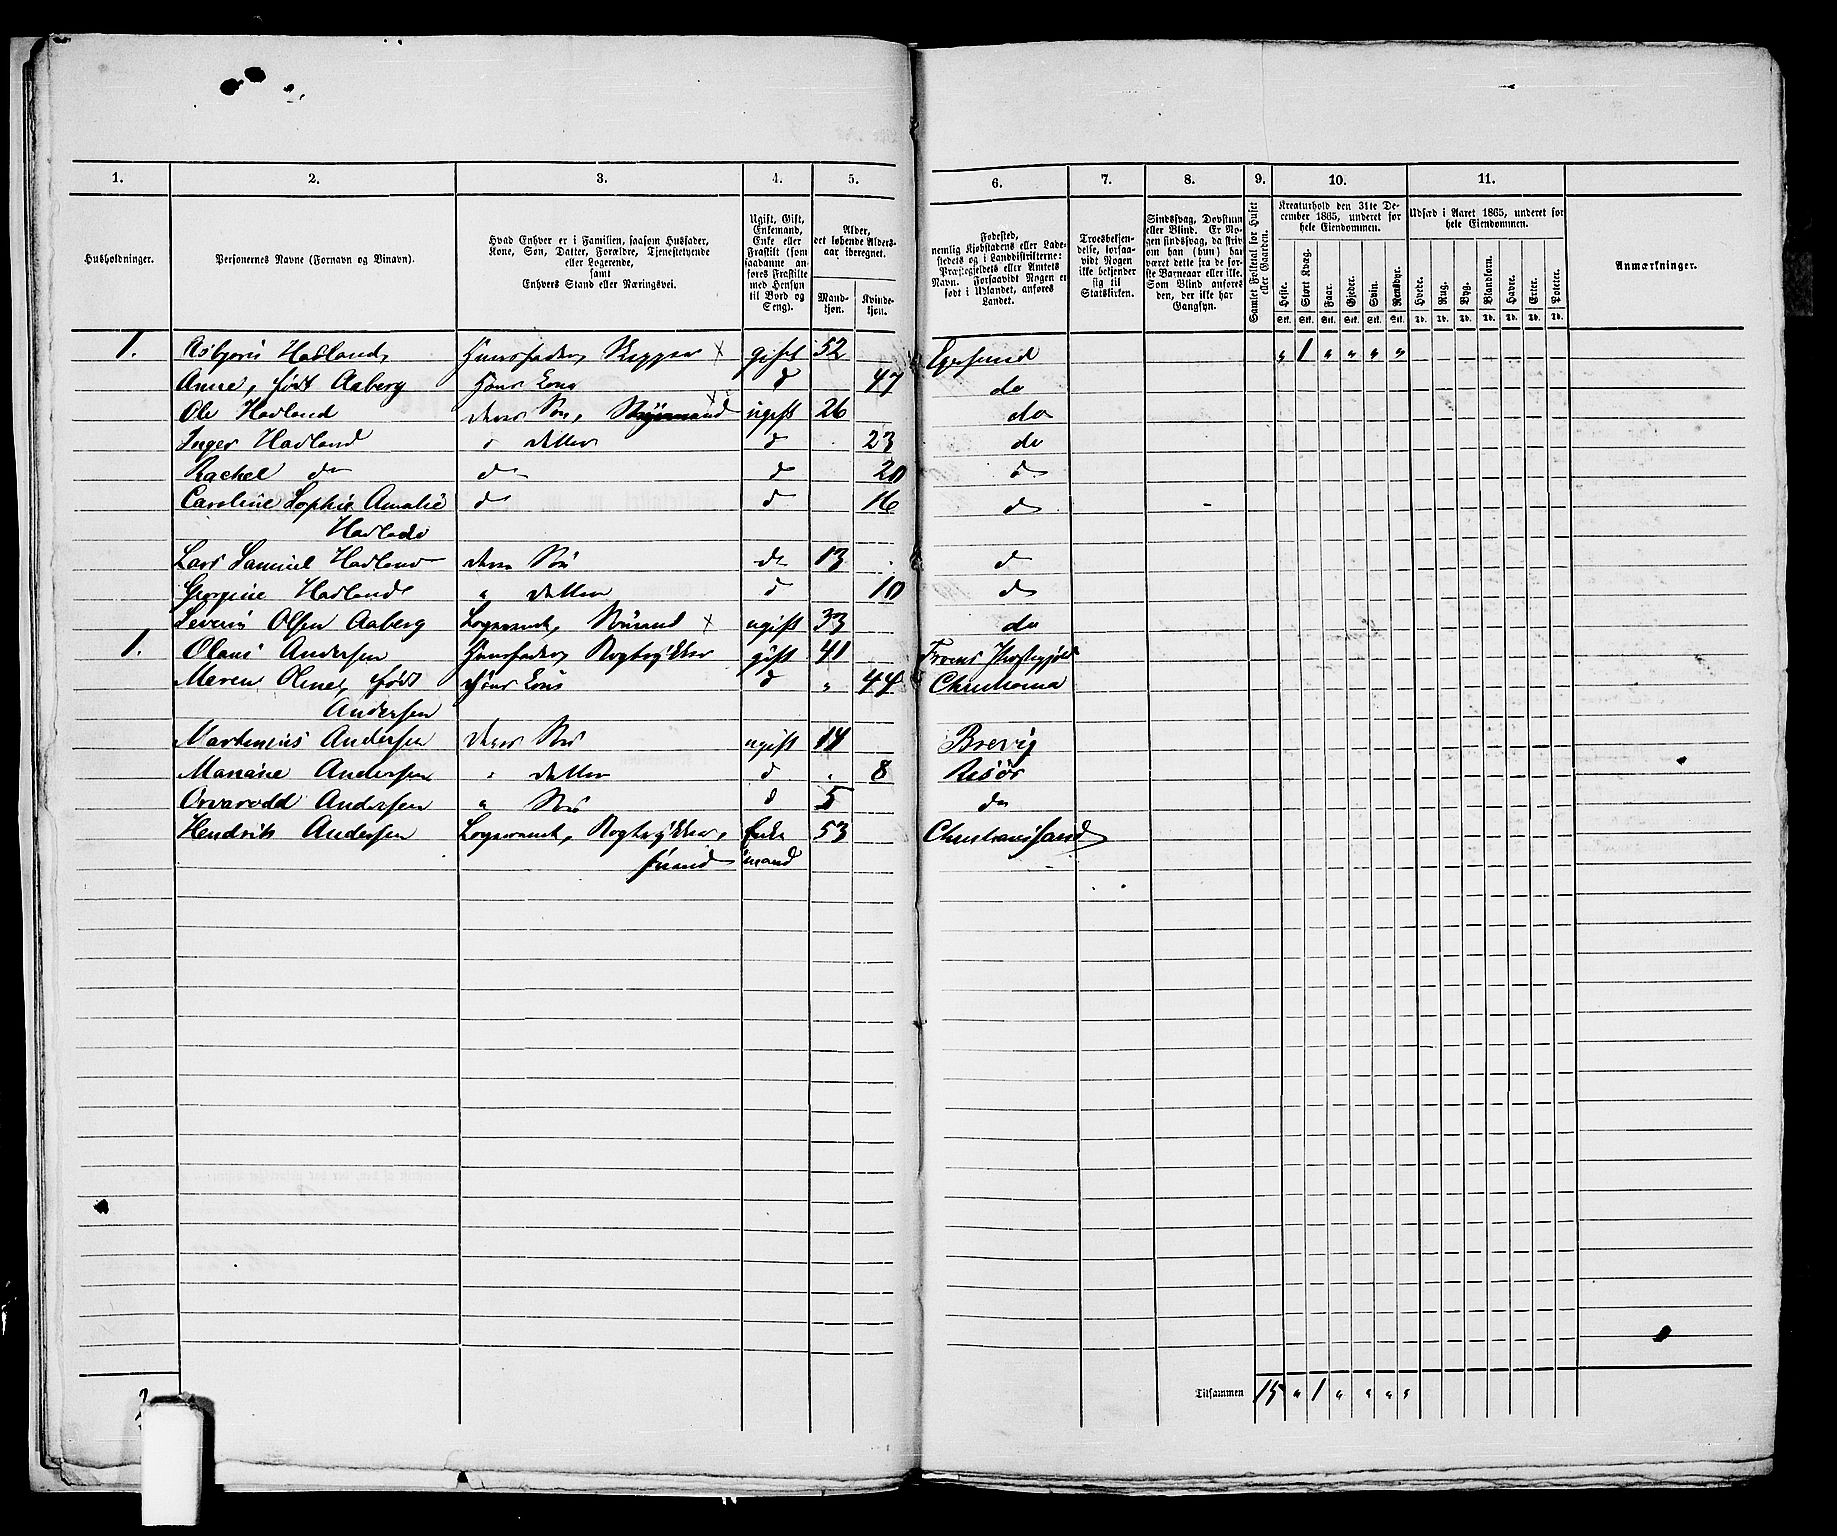 1. 2. 3. 4. 5. 6. 7. 8. 9. 10. 11.
Husholdninger.
Personernes Navne (Fornavn og Binavn).
Hvad Enhver er i Familien, saasom Husfader,
Kone, Søn, Datter, Forældre, Tjenestetyende
eller Logerende,
samt
Enhvers Stand eller Næringsvei.
Ugift, Gift,
Enkemand,
Enke eller
Fraskilt (som
saadanne an-
føres Fraskilte
med Hensyn
til Bord og
Seng).
Alder,
det løbende Alders-
aar iberegnet.
Mand-
kjøn.
Kvinde-
kjøn.
Fødested,
nemlig Kjøbstadens eller Lade-
stedets og i Landdistrikterne:
Præstegjeldets eller Amtets
Navn. Forsaavidt Nogen er
født i Udlandet, anføres
Landet.
Troesbekjen-
delse, forsaa-
vidt Nogen
ikke bekjender
sig til
Statskirken.
Sindssvag, Døvstum
eller Blind. Er No-
gen sindssvag, da hvis
om han (hun) har
været dette fra de før-
ste Barneaar eller ikke.
Som Blind anføres
den, der ikke har
Gangsyn.
Samlet Folketal for Huset
eller Gaarden.
Kreaturhold den 31te De-
cember 1865, underet for
hele Eiendommen.
Heste. Stort Kvæg. Faar. Gjeder. Svin. Rensdyr.
Stk. Stk. Stk. Stk. Stk. Stk.
Udsæd i Aaret 1865, underet for
hele Eiendommen.
Hvede. Rug. Byg. Blandkorn. Havre. Erter. Poteter.
Td. Td. Td. Td. Td. Td. Td.
Anmærkninger.
1. Asbjørn Hadland, Huusfader, Skipper × gift 52 Egersund " 1 " " " "
Anne, født Aaberg Hans Kone d 47 do
Ole Hadland deres Søn, Styrmand × ugift 26 do
Inger Hadland d datter d 23 do
Rachel do do d 20 d
Caroline Sophie Amalie d d 16 d
Hadland
Lars Samuel Hadland deres Søn do 13 d
Georgine Hadland " datter d 10 d
Severin Olsen Aaberg Logerende, × ugift 33 do
1. Olaus Andersen Huusfader, Rogtrykker gift 41 Præstegjæld
Maren Oline, født Hans Kone d " 44 Christiania
Andersen
Martinius Andersen deres Søn ugift 14 Brevig
Mariane Andersen " datter d " 8 Risør
Orvarodd Andersen " Søn d 5 do
Hendrik Andersen Logerende, Rogtrykker, Enke 53 Christianssand
mand
Tilsammen 15 " 1 " " " "